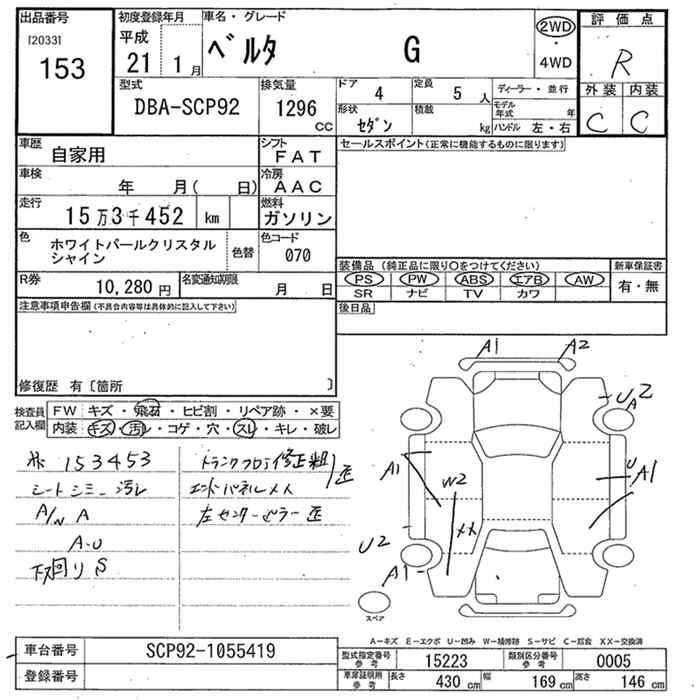 出品番号 初度登録年月 車名・グレード 2WD 評価点
[2033] 平成 ベルタ G ・ R
153 21 1月 4WD
型式 排気量 ドア 4 定員 5 人 ディーラー・並行 外装 内装
DBA-SCP92 1296 cc 形状 セダン 積載 kg モデル年式 年 C C
ハンドル 左・右
車歴 自家用 シフト FAT セールスポイント(正常に機能するものに限ります)
車検 年 月( 日) 冷房 AAC
走行 15万3千452 km 燃料 ガソリン
色 ホワイトパールクリスタルシャイン 色替 色コード 070
装備品(純正品に限り○をつけてください) 新車保証書
R券 10,280円 名変通知期限 月 日 PS PW ABS エアB AW 有・無
SR ナビ TV カワ
注意事項申告欄(不具合内容等は具体的に記入して下さい) 後日品
修復歴 有〔箇所 〕
検査員記入欄 FW キズ・飛石・ヒビ割・リペア跡・×要
内装 キズ・汚レ・コゲ・穴・スレ・キレ・破レ
153453 トランクフロア修正粗 歪
シートシミー汚レ エンドパネルメメ
A/N A 左センターピラー歪
A-U
下廻り S
A1 A2
UA2
A1 W2 U A1
U2 XX
A1
スペア
A-キズ E-エクボ U-凹み W-補修跡 S-サビ C-腐食 XX-交換済
車台番号 SCP92-1055419 型式指定番号参考 15223 類別区分番号参考 0005
登録番号 車庫証明用参考 長さ 430 cm 幅 169 cm 高さ 146 cm